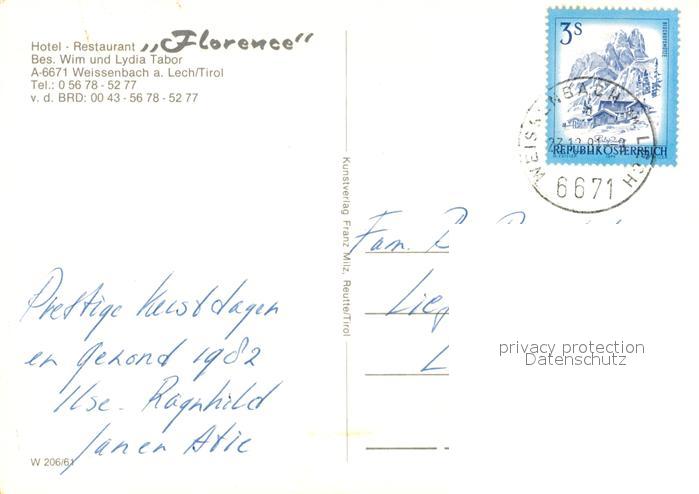 Hotel - Restaurant „Florence“
Bes. Wim und Lydia Tabor
A-6671 Weissenbach a. Lech/Tirol
Tel.: 0 56 78 - 52 77
v. d. BRD: 00 43 - 56 78 - 52 77
3S
REPUBLIK ÖSTERREICH
WEISSENBACH AM LECH
6671
Kunstverlag Franz Milz, Reutte/Tirol
Fam.
privacy protection
Datenschutz
Prettige Kerstdagen
en gezond 1982
Ilse. Ragnhild
Jan en Atie
W 206/61